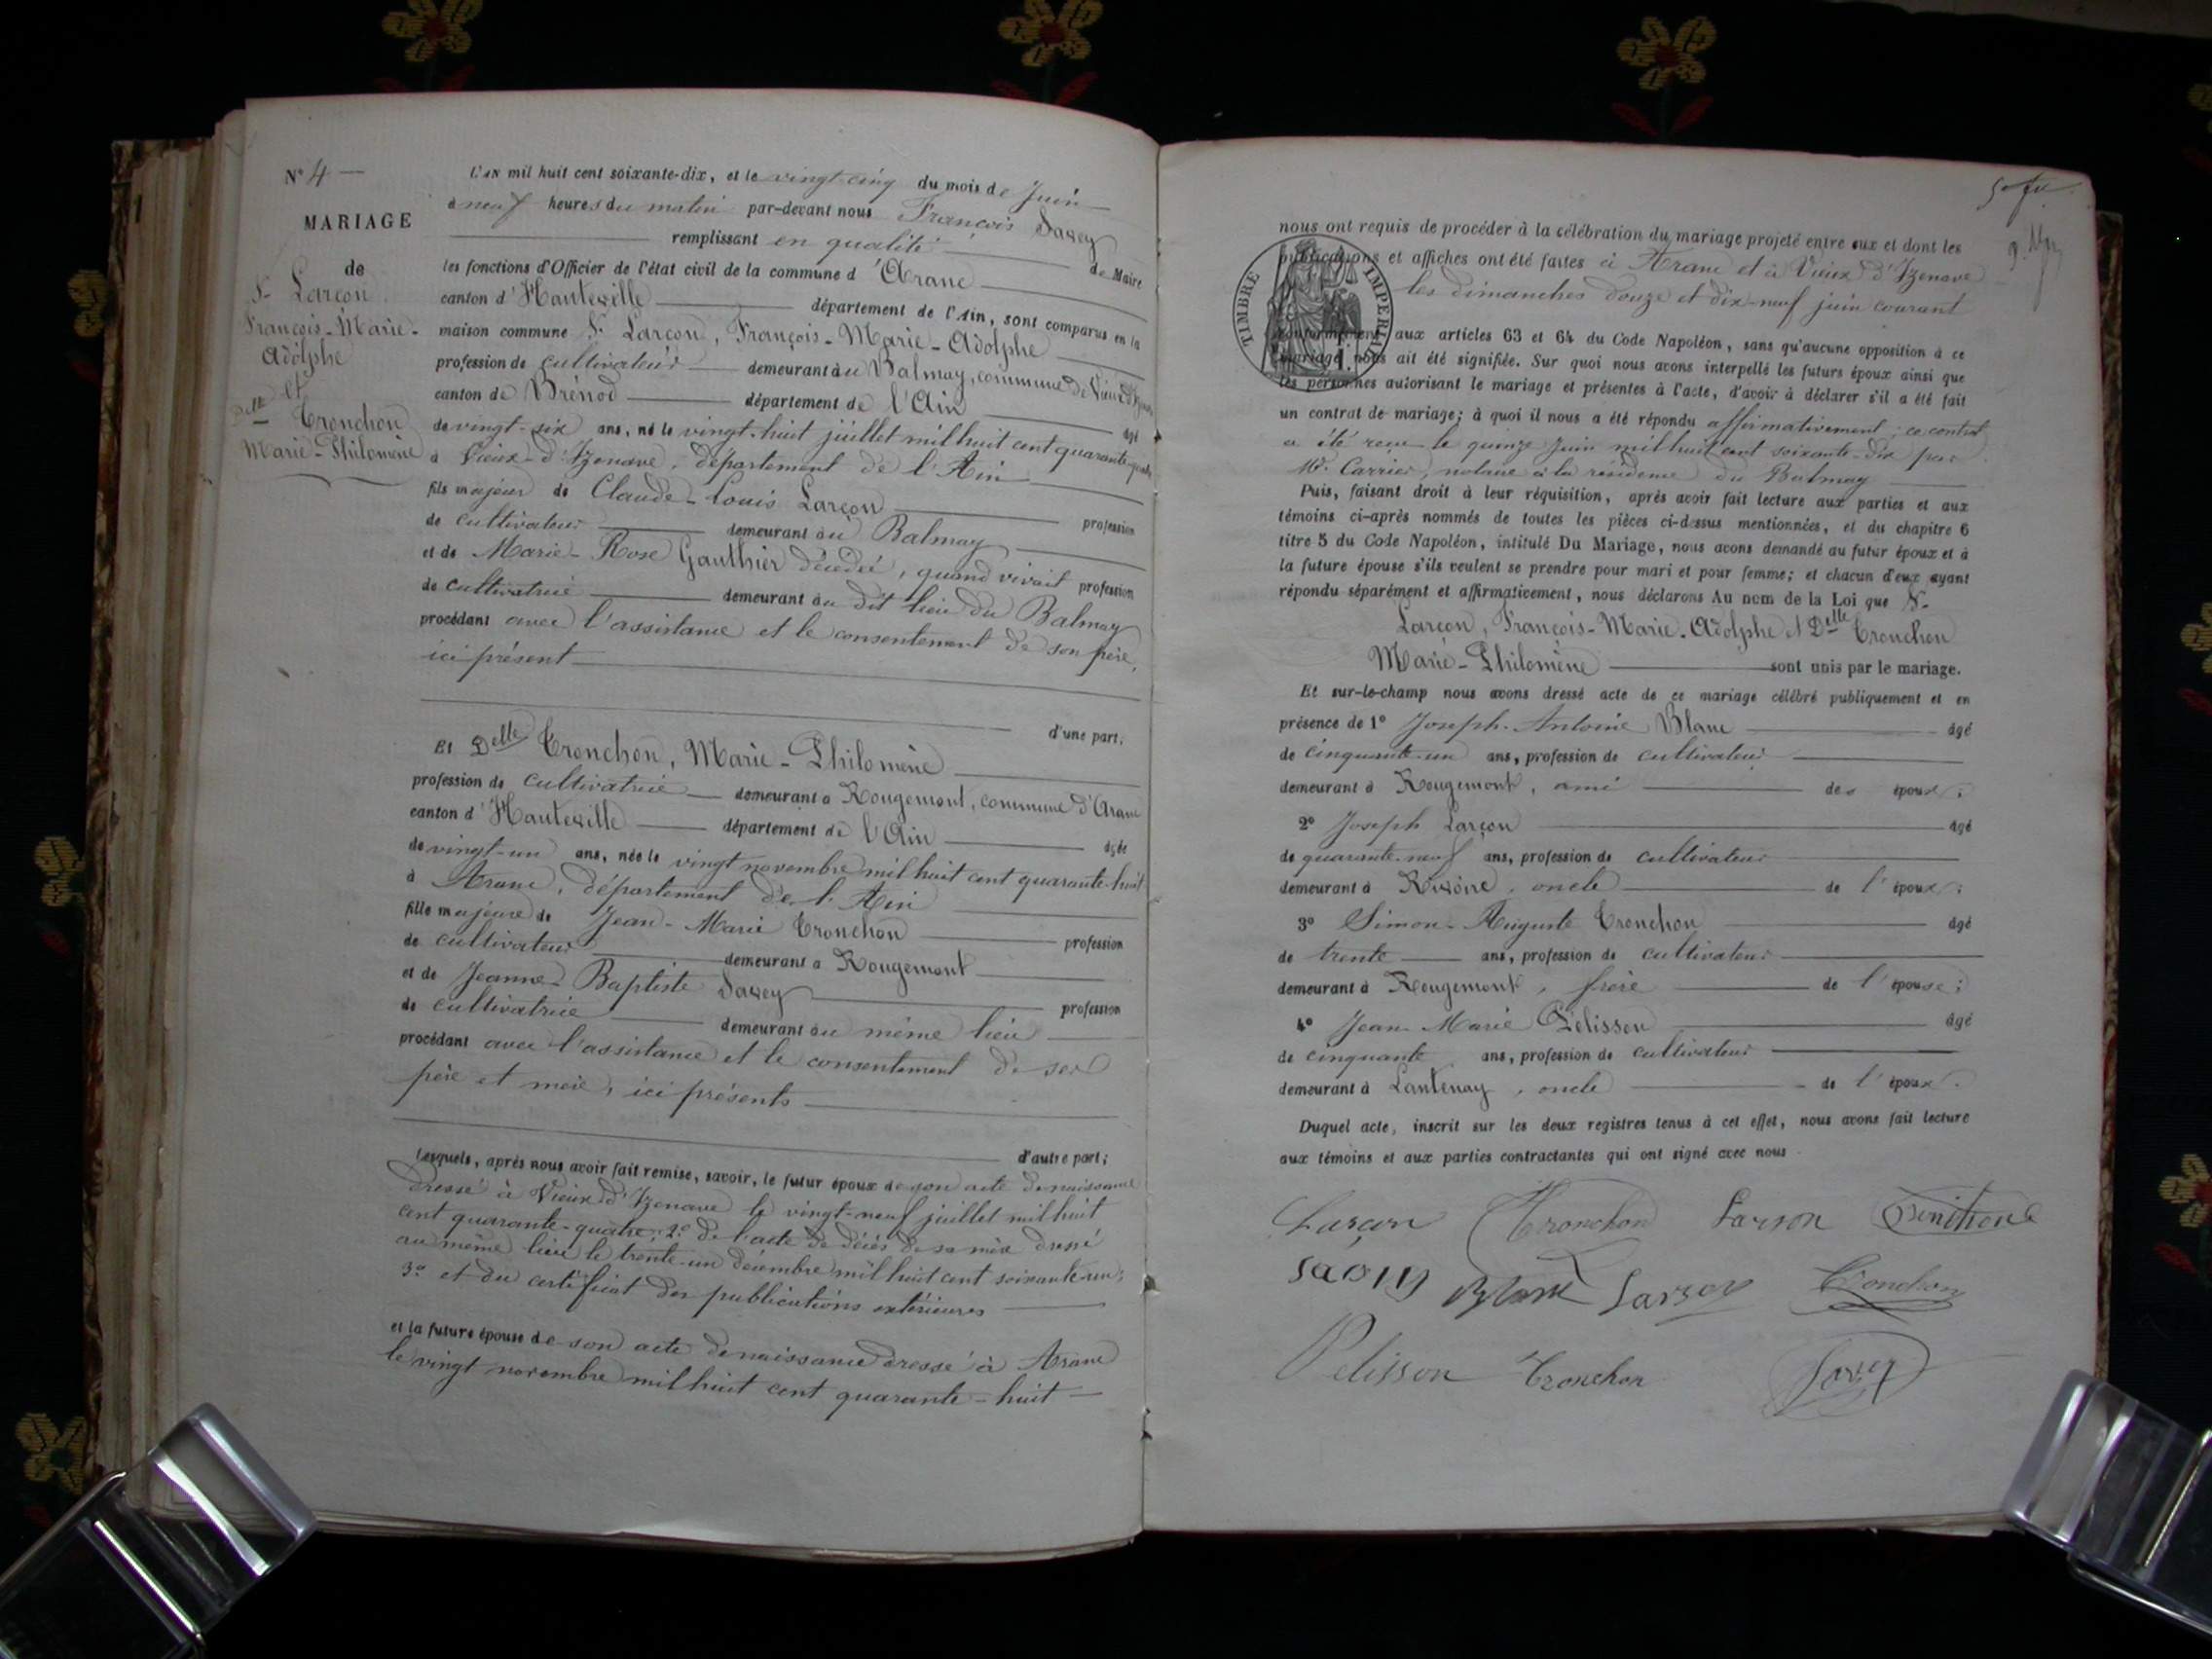 N° 4
MARIAGE
de
Sr Larçon
François-Marie-
Adolphe
Et
Delle Tronchon
Marie-Philomène
L'AN mil huit cent soixante-dix, et le vingt-cinq du mois de Juin
à neuf heures du matin par-devant nous François Savey
remplissant en qualité de Maire
les fonctions d'Officier de l'état civil de la commune d'Aranc
canton d'Hauteville département de l'Ain, sont comparus en la
maison commune Sr Larçon, François-Marie-Adolphe
profession de cultivateur demeurant au Balmay, commune de Vieux d'Izenave
canton de Brénod département de l'Ain âgé
de vingt-six ans, né le vingt-huit juillet mil huit cent quarante-quatre
à Vieux-d'Izenave, département de l'Ain
fils majeur de Claude-Louis Larçon profession
de cultivateur demeurant au Balmay
et de Marie-Rose Gauthier décédée, quand vivait profession
de cultivatrice demeurant au dit lieu du Balmay
procédant avec l'assistance et le consentement de son père,
ici présent
d'une part;
Et Delle Tronchon, Marie-Philomène
profession de cultivatrice demeurant à Rougemont, commune d'Aranc
canton d'Hauteville département de l'Ain âgée
de vingt-un ans, née le vingt novembre mil huit cent quarante-huit
à Aranc, département de l'Ain
fille majeure de Jean-Marie Tronchon profession
de cultivateur demeurant à Rougemont
et de Jeanne-Baptiste Savey profession
de cultivatrice demeurant au même lieu
procédant avec l'assistance et le consentement de ses
père et mère, ici présents
d'autre part;
Lesquels, après nous avoir fait remise, savoir, le futur époux de son acte de naissance
dressé à Vieux d'Izenave le vingt-neuf juillet mil huit
cent quarante-quatre; 2° de l'acte de décès de sa mère dressé
au même lieu le trente-un décembre mil huit cent soixante-un;
3° et du certificat des publications extérieures
et la future épouse de son acte de naissance dressé à Aranc
le vingt novembre mil huit cent quarante-huit
nous ont requis de procéder à la célébration du mariage projeté entre eux et dont les
publications et affiches ont été faites à Aranc et à Vieux d'Izenave
les dimanches douze et dix-neuf juin courant
TIMBRE IMPERIAL
conformément aux articles 63 et 64 du Code Napoléon, sans qu'aucune opposition à ce
mariage nous ait été signifiée. Sur quoi nous avons interpellé les futurs époux ainsi que
les personnes autorisant le mariage et présentes à l'acte, d'avoir à déclarer s'il a été fait
un contrat de mariage; à quoi il nous a été répondu affirmativement; ce contrat
a été reçu le quinze Juin mil huit cent soixante-dix par
Me Carrier, notaire à la résidence du Balmay
Puis, faisant droit à leur réquisition, après avoir fait lecture aux parties et aux
témoins ci-après nommés de toutes les pièces ci-dessus mentionnées, et du chapitre 6
titre 5 du Code Napoléon, intitulé Du Mariage, nous avons demandé au futur époux et à
la future épouse s'ils veulent se prendre pour mari et pour femme; et chacun d'eux ayant
répondu séparément et affirmativement, nous déclarons Au nom de la Loi que Sr
Larçon, François-Marie-Adolphe et Delle Tronchon
Marie-Philomène sont unis par le mariage.
Et sur-le-champ nous avons dressé acte de ce mariage célébré publiquement et en
présence de 1° Joseph-Antoine Blanc âgé
de cinquante-un ans, profession de cultivateur
demeurant à Rougemont, ami des époux;
2° Joseph Larçon âgé
de quarante-neuf ans, profession de cultivateur
demeurant à Rivoire, oncle de l'époux;
3° Simon-Auguste Tronchon âgé
de trente ans, profession de cultivateur
demeurant à Rougemont, frère de l'épouse;
4° Jean-Marie Pelisson âgé
de cinquante ans, profession de cultivateur
demeurant à Lantenay, oncle de l'époux.
Duquel acte, inscrit sur les deux registres tenus à cet effet, nous avons fait lecture
aux témoins et aux parties contractantes qui ont signé avec nous.
Larçon Tronchon Larson
Blanc Tronchon
Pelisson Tronchon Savey